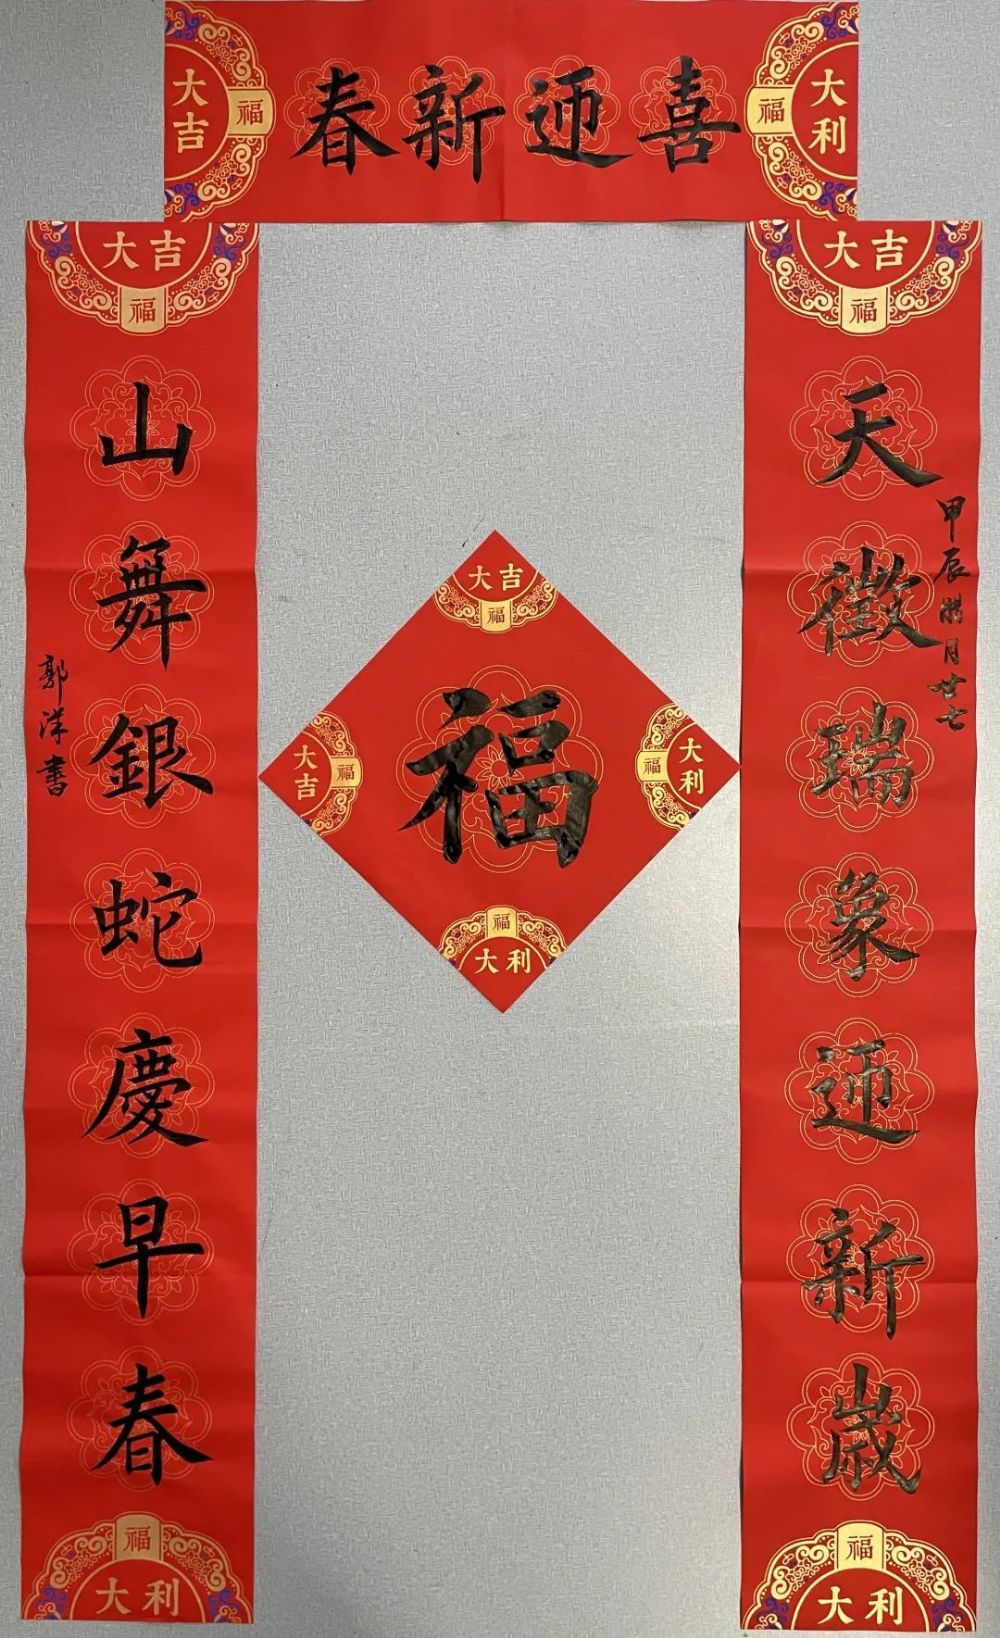 大利
福
喜迎新春
福
大吉
大吉
福
天徵瑞象迎新歲
甲辰腊月廿七
福
大利
大吉
福
山舞銀蛇慶早春
郭洋書
福
大利
大吉
福
大吉
福
福
福
大利
福
大利